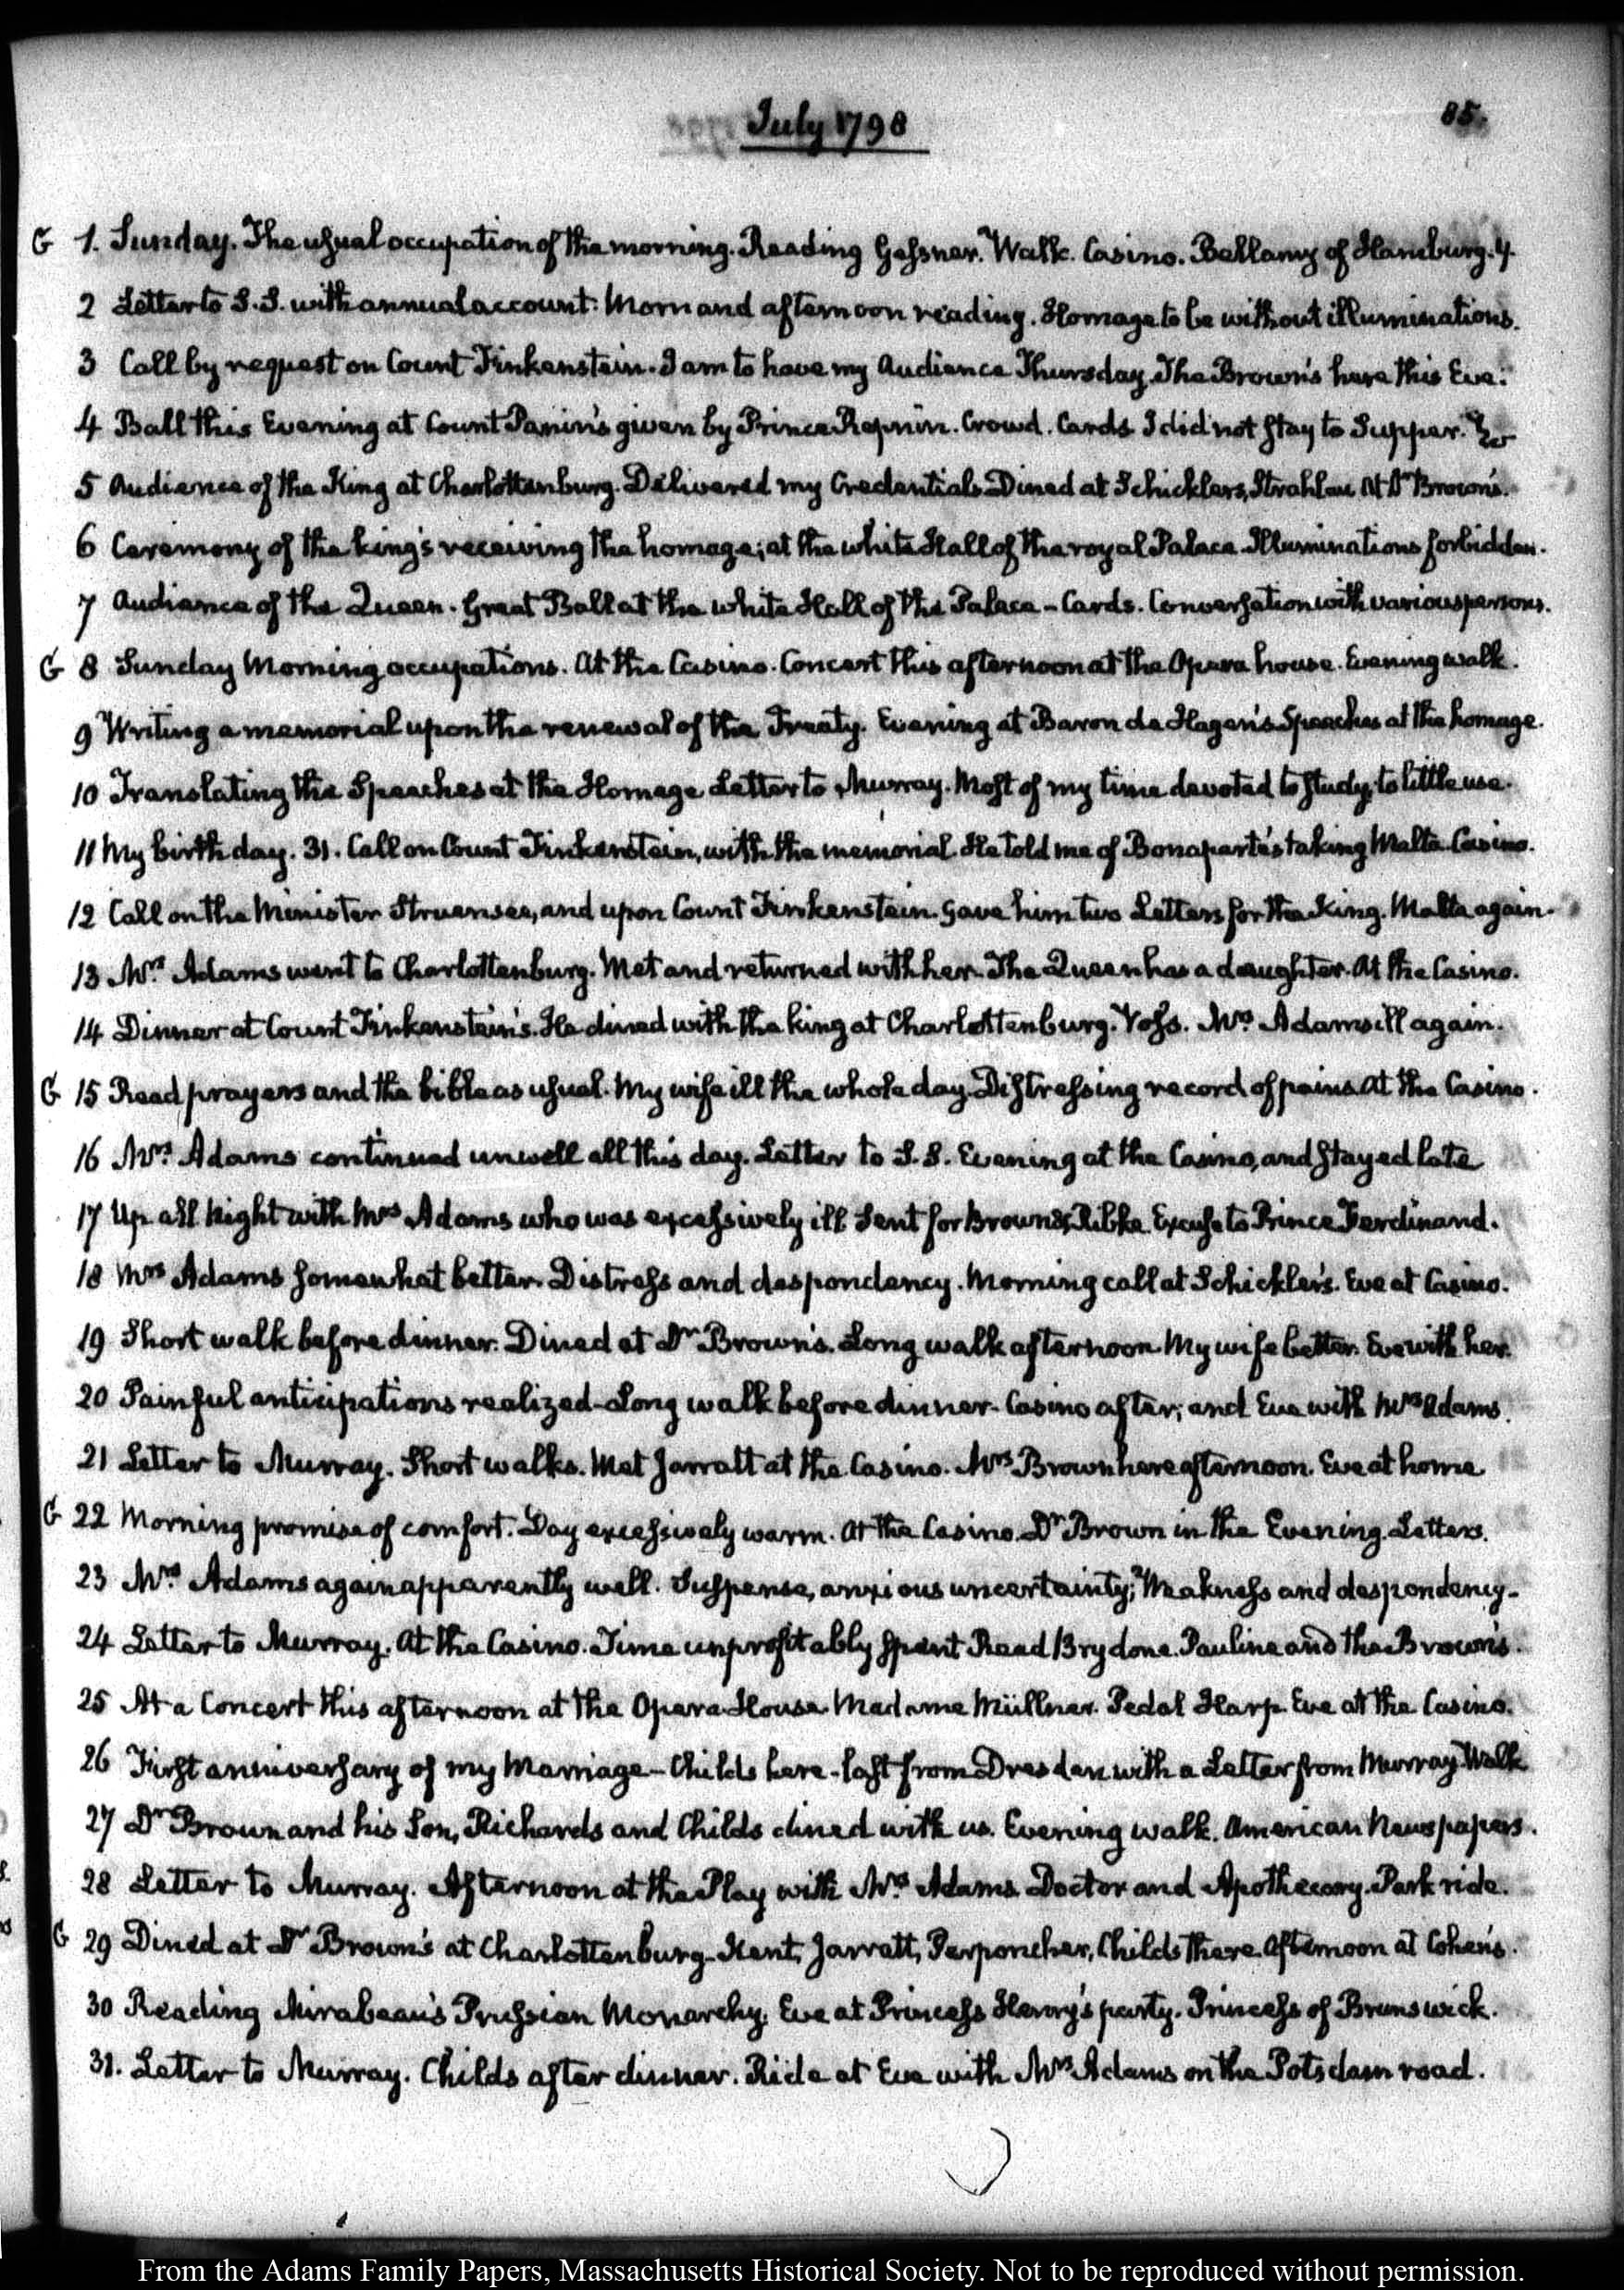 July 1798
85.
G 1. Sunday. The usual occupation of the morning. Reading Gessner. Walk. Casino. Bellamy of Hamburg. 4.
2 Letter to S.S. with annual account. Morn and afternoon reading. Homage to be without illuminations.
3 Call by request on Count Finkenstein. I am to have my Audience Thursday. The Brown's here this Eve.
4 Ball this Evening at Count Panin's given by Prince Repnin. Crowd. Cards. I did not stay to Supper.
5 Audience of the King at Charlottenburg. Delivered my Credentials. Dined at Schicklers, Strahlau. At Dr Brown's.
6 Ceremony of the king's receiving the homage; at the white Hall of the royal Palace. Illuminations forbidden.
7 Audience of the Queen. Great Ball at the white Hall of the Palace - Cards. Conversation with various persons.
G 8 Sunday Morning occupations. At the Casino. Concert this afternoon at the Opera house. Evening walk.
9 Writing a memorial upon the renewal of the Treaty. Evening at Baron de Hagen's. Speeches at the homage.
10 Translating the Speeches at the Homage. Letter to Murray. Most of my time devoted to study; to little use.
11 My birth day. 31. Call on Count Finkenstein, with the memorial. He told me of Bonaparte's taking Malta. Casino.
12 Call on the Minister Struensee, and upon Count Finkenstein. Gave him two Letters for the King. Malta again.
13 Mrs. Adams went to Charlottenburg. Met and returned with her. The Queen has a daughter. At the Casino.
14 Dinner at Count Finkenstein's. He dined with the king at Charlottenburg. Voss. Mrs Adams ill again.
G 15 Read prayers and the bible as usual. My wife ill the whole day. Distressing record of pains. At the Casino.
16 Mrs. Adams continued unwell all this day. Letter to S.S. Evening at the Casino, and stayed late
17 Up all Night with Mrs Adams who was excessively ill. Sent for Brown & Ribke. Excuse to Prince Ferdinand.
18 Mrs Adams somewhat better. Distress and despondency. Morning call at Schickler's. Eve at Casino.
19 Short walk before dinner. Dined at Dr Brown's. Long walk afternoon. My wife better. Eve with her.
20 Painful anticipations realized - Long walk before dinner - Casino after; and Eve with Mrs Adams.
21 Letter to Murray. Short walks. Met Jarratt at the Casino. Mrs Brown here afternoon. Eve at home
G 22 Morning promise of comfort. Day excessively warm. At the Casino. Dr Brown in the Evening. Letters.
23 Mrs. Adams again apparently well. Suspense, anxious uncertainty; Weakness and despondency -
24 Letter to Murray. At the Casino. Time unprofitably spent. Read Brydone. Pauline and the Brown's.
25 At a Concert this afternoon at the Opera House. Madame Müllner. Pedal Harp. Eve at the Casino.
26 First anniversary of my Marriage - Childs here - last from Dresden with a Letter from Murray. Walk
27 Dr Brown and his Son, Richards and Childs dined with us. Evening walk. American Newspapers.
28 Letter to Murray. Afternoon at the Play with Mrs Adams. Doctor and Apothecary. Park ride.
G 29 Dined at Dr Brown's at Charlottenburg - Kent, Jarratt, Perponcher, Childs there. Afternoon at Cohen's.
30 Reading Mirabeau's Prussian Monarchy. Eve at Princess Henry's party. Princess of Brunswick.
31. Letter to Murray. Childs after dinner. Ride at Eve with Mrs Adams on the Potsdam road.
From the Adams Family Papers, Massachusetts Historical Society. Not to be reproduced without permission.